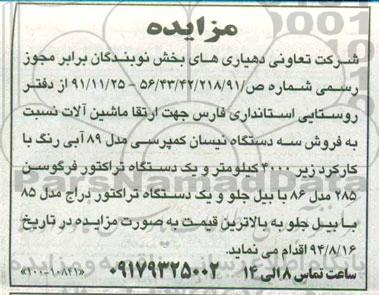 مزایده
شرکت تعاونی دهیاری های بخش نوبندگان برابر مجوز
رسمی شماره ص/۵۶/۴۳/۴۲/۲۱۸/۹۱ - ۹۱/۱۱/۲۵ از دفتر
روستایی استانداری فارس جهت ارتقا ماشین آلات نسبت
به فروش سه دستگاه نیسان کمپرسی مدل ۸۹ آبی رنگ با
کارکرد زیر ۴۰۰ کیلومتر و یک دستگاه تراکتور فرگوسن
۲۸۵ مدل ۸۶ با بیل جلو و یک دستگاه تراکتور دراج مدل ۸۵
با بیل جلو به بالاترین قیمت به صورت مزایده در تاریخ
۹۴/۸/۱۶ اقدام می نماید.
ساعت تماس ۸ الی ۱۴ ۰۹۱۷۹۳۲۵۰۰۲ «۱۰۰-۱۰۸۴۱»